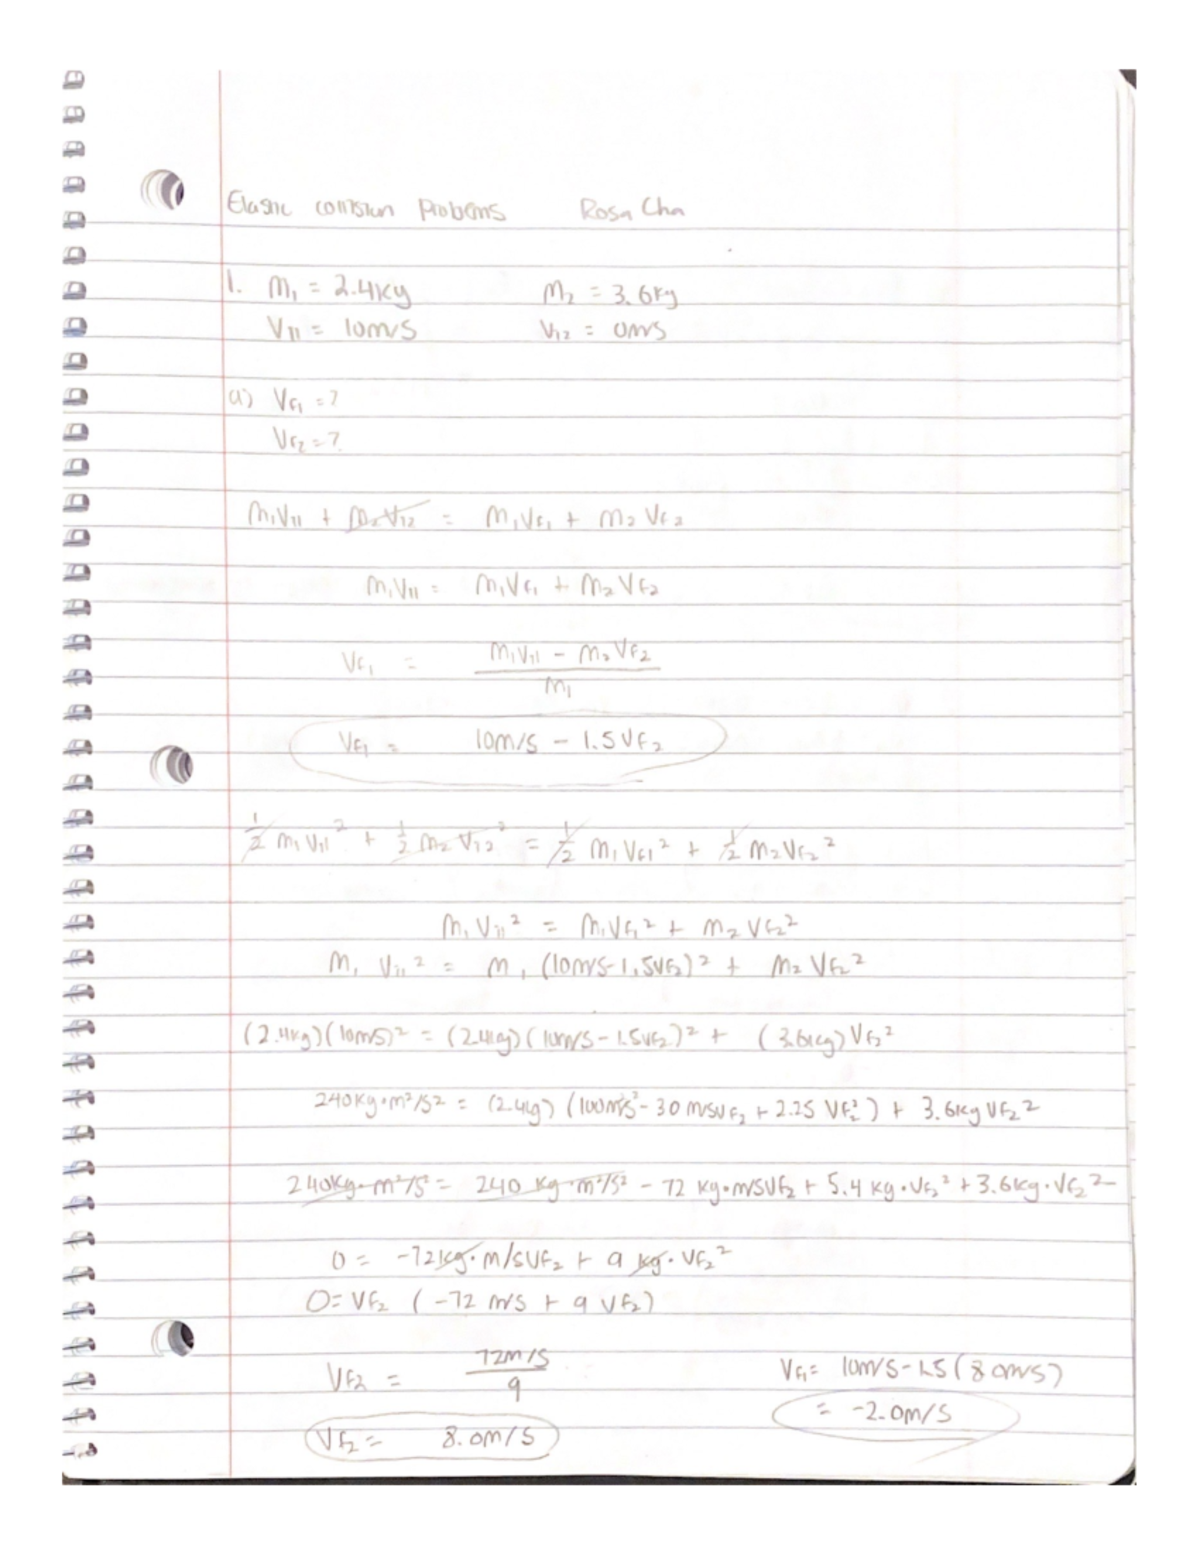 Elastic collision Problems Rosa Cha
1. m₁ = 2.4kg m₂ = 3.6kg
V₁₁ = 10m/s V₁₂ = 0m/s
a) VF₁ = ?
VF₂ = ?
m₁V₁₁ + m₂V₁₂ = m₁VF₁ + m₂VF₂
m₁V₁₁ = m₁VF₁ + m₂VF₂
VF₁ = m₁V₁₁ - m₂VF₂ / m₁
VF₁ = 10m/s - 1.5VF₂
1/2 m₁V₁₁² + 1/2 m₂V₁₂² = 1/2 m₁VF₁² + 1/2 m₂VF₂²
m₁V₁₁² = m₁VF₁² + m₂VF₂²
m₁ V₁₁² = m₁ (10m/s-1.5VF₂)² + m₂ VF₂²
(2.4kg)(10m/s)² = (2.4kg)(10m/s-1.5VF₂)² + (3.6kg)VF₂²
240kg·m²/s² = (2.4kg)(100m²/s²-30m/sVF₂ + 2.25 VF₂²) + 3.6kgVF₂²
240kg·m²/s² = 240 kg·m²/s² - 72 kg·m/sVF₂ + 5.4 kg·VF₂² + 3.6kg·VF₂²
0 = -72kg·m/sVF₂ + 9 kg·VF₂²
0=VF₂ (-72 m/s + 9 VF₂)
VF₂ = 72m/s / 9 VF₁= 10m/s-1.5(8.0m/s)
VF₂ = 8.0m/s = -2.0m/s